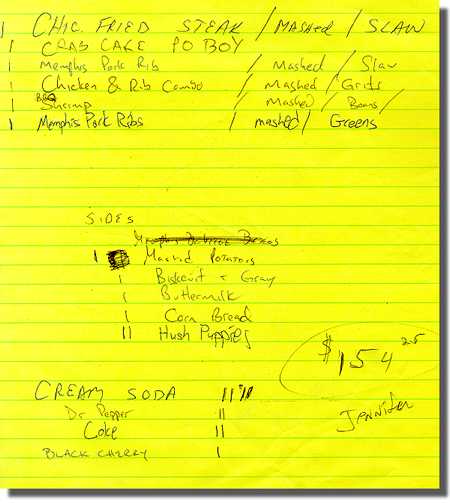 1 CHIC. FRIED STEAK / MASHED / SLAW
1 CRAB CAKE PO BOY
1 Memphis Pork Rib / Mashed / Slaw
1 Chicken & Rib Combo / Mashed / Grits
1 BBQ Shrimp / Mashed / Beans /
1 Memphis Pork Ribs / mashed / Greens
SIDES
1 Mashed Potatoes
1 Biskuit + Gravy
1 Buttermilk
1 Corn Bread
11 Hush Puppies
$154 25
CREAM SODA
Jennifer
Dr Pepper 11
Coke 11
BLACK CHERRY 1